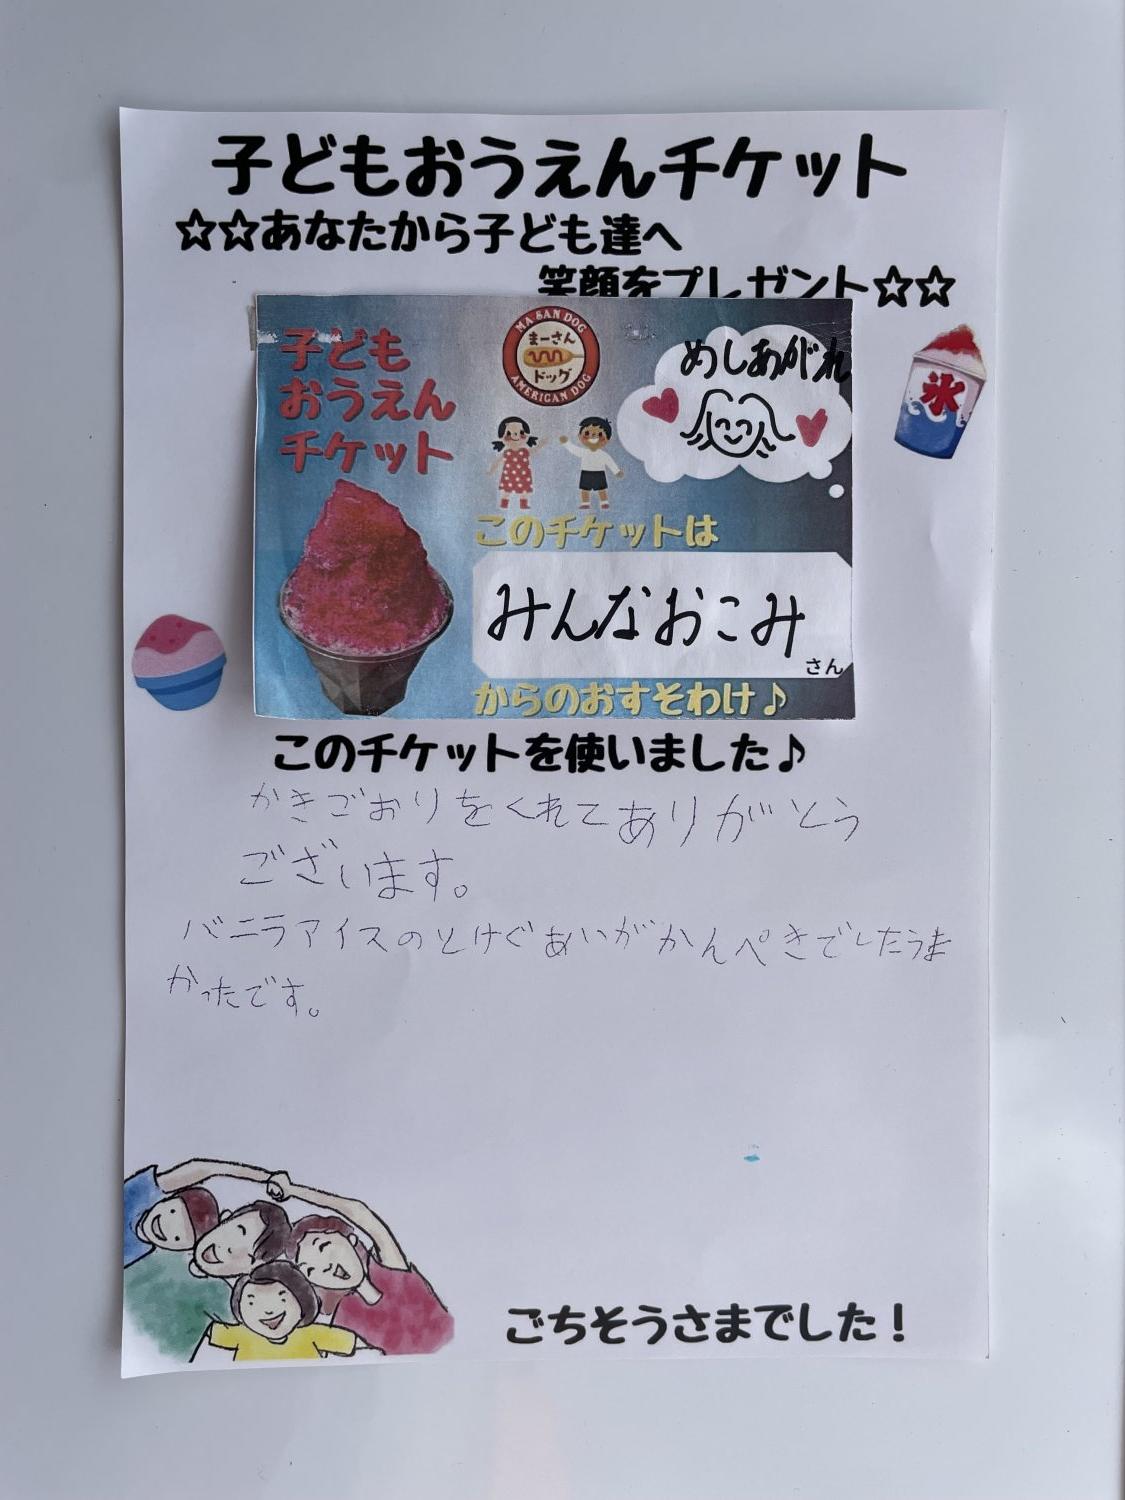 子どもおうえんチケット
☆☆あなたから子ども達へ
笑顔をプレゼント☆☆
氷
子ども
おうえん
チケット
MA SAN DOG
まーさん
ドッグ
AMERICAN DOG
めしあがれ
このチケットは
みんなおこみ
さん
からのおすそわけ♪
このチケットを使いました♪
かきごおりをくれてありがとう
ございます。
バニラアイスのとけぐあいがかんぺきでしたうま
かったです。
ごちそうさまでした！